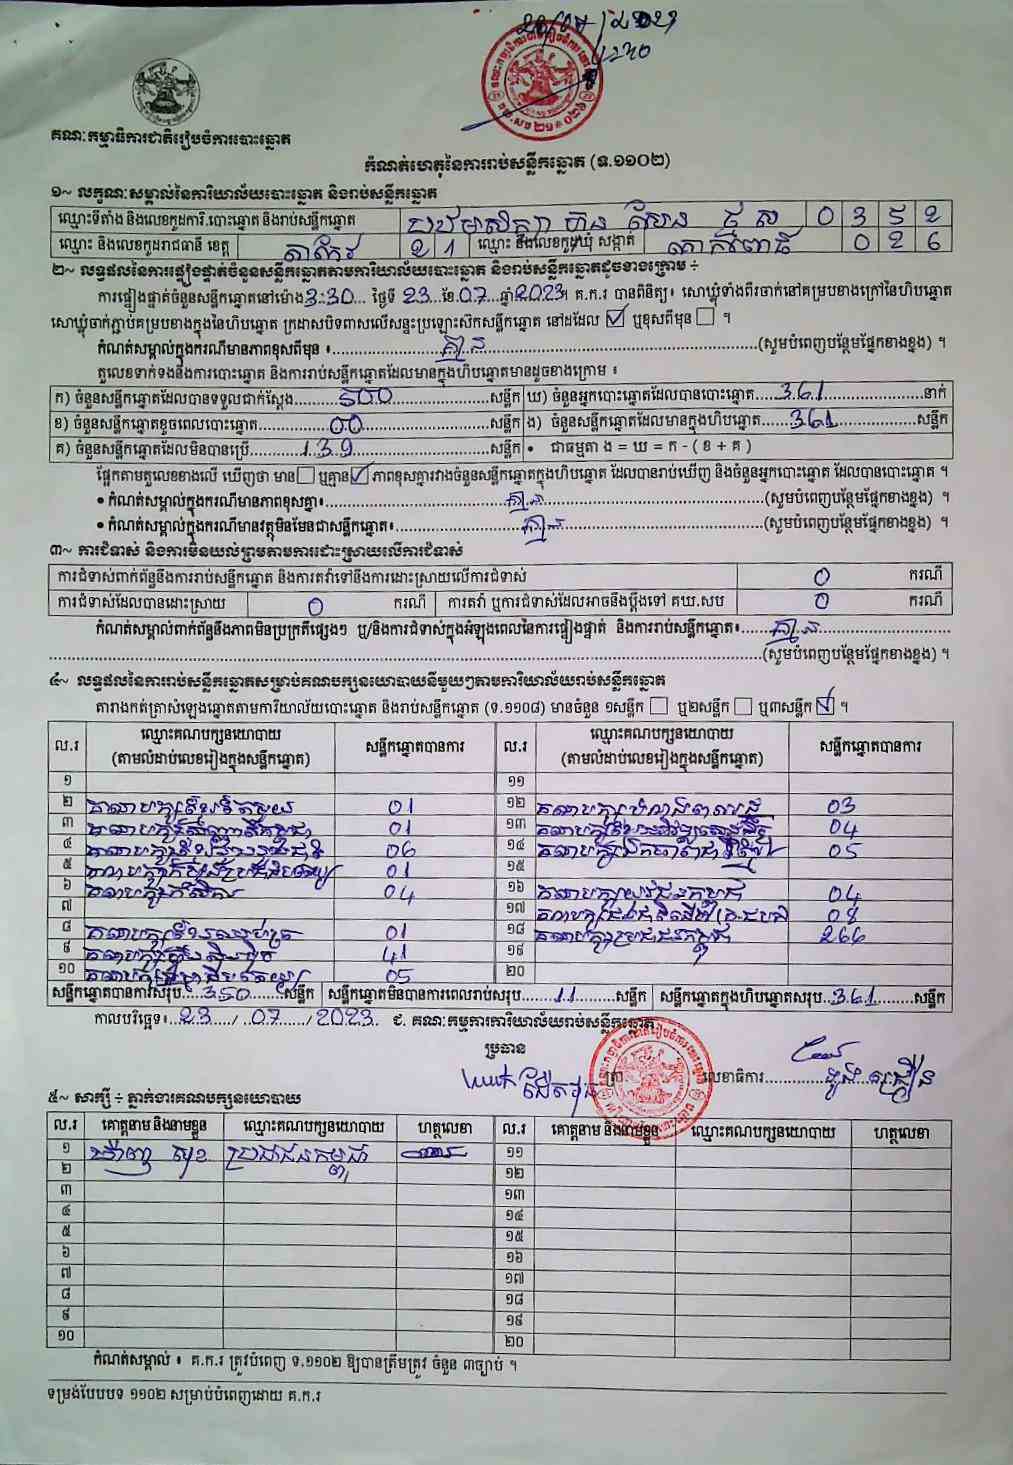 គណៈកម្មាធិការជាតិរៀបចំការបោះឆ្នោត
កំណត់ហេតុនៃការរាប់សន្លឹកឆ្នោត (ទ.១១០២)
១~ លក្ខណៈសម្គាល់នៃការិយាល័យបោះឆ្នោត និងរាប់សន្លឹកឆ្នោត
ឈ្មោះទីតាំង និងលេខកូដការិ.បោះឆ្នោត និងរាប់សន្លឹកឆ្នោត បឋមសិក្សា ហ៊ុន សែន 0 3 5 2
ឈ្មោះ និងលេខកូដរាជធានី ខេត្ត តាកែវ 2 1 ឈ្មោះ និងលេខកូដឃុំ សង្កាត់ គោកពោធិ៍ 0 2 6
២~ លទ្ធផលនៃការផ្ទៀងផ្ទាត់ចំនួនសន្លឹកឆ្នោតតាមការិយាល័យបោះឆ្នោត និងរាប់សន្លឹកឆ្នោតដូចខាងក្រោម ÷
ការផ្ទៀងផ្ទាត់ចំនួនសន្លឹកឆ្នោតនៅម៉ោង 3:30 ថ្ងៃទី 23 ខែ 07 ឆ្នាំ 2023។ គ.ក.រ បានពិនិត្យ៖ សោឃ្លុំទាំងពីរចាក់នៅគម្របខាងក្រៅនៃហិបឆ្នោត
សោឃ្លុំចាក់ភ្ជាប់គម្របខាងក្នុងនៃហិបឆ្នោត ក្រដាសបិទពាសលើសន្ទះប្រឡោះស៊កសន្លឹកឆ្នោត នៅដដែល ☑ ឬខុសពីមុន ☐ ។
កំណត់សម្គាល់ក្នុងករណីមានភាពខុសពីមុន ៖ គ្មាន (សូមបំពេញបន្ថែមផ្នែកខាងខ្នង) ។
តួលេខទាក់ទងនឹងការបោះឆ្នោត និងការរាប់សន្លឹកឆ្នោតដែលមានក្នុងហិបឆ្នោតមានដូចខាងក្រោម ៖
ក) ចំនួនសន្លឹកឆ្នោតដែលបានទទួលជាក់ស្តែង 500 សន្លឹក ឃ) ចំនួនអ្នកបោះឆ្នោតដែលបានបោះឆ្នោត 361 នាក់
ខ) ចំនួនសន្លឹកឆ្នោតខូចពេលបោះឆ្នោត 00 សន្លឹក ង) ចំនួនសន្លឹកឆ្នោតដែលមានក្នុងហិបឆ្នោត 361 សន្លឹក
គ) ចំនួនសន្លឹកឆ្នោតដែលមិនបានប្រើ 139 សន្លឹក • ជាធម្មតា ង = ឃ = ក - ( ខ + គ )
ផ្អែកតាមតួលេខខាងលើ ឃើញថា មាន ☐ ឬគ្មាន ☑ ភាពខុសគ្នារវាងចំនួនសន្លឹកឆ្នោតក្នុងហិបឆ្នោត ដែលបានរាប់ឃើញ និងចំនួនអ្នកបោះឆ្នោត ដែលបានបោះឆ្នោត ។
• កំណត់សម្គាល់ក្នុងករណីមានភាពខុសគ្នា៖ គ្មាន (សូមបំពេញបន្ថែមផ្នែកខាងខ្នង) ។
• កំណត់សម្គាល់ក្នុងករណីមានវត្ថុមិនមែនជាសន្លឹកឆ្នោត៖ គ្មាន (សូមបំពេញបន្ថែមផ្នែកខាងខ្នង) ។
៣~ ការជំទាស់ និងការមិនយល់ព្រមតាមការដោះស្រាយលើការជំទាស់
ការជំទាស់ពាក់ព័ន្ធនឹងការរាប់សន្លឹកឆ្នោត និងការតវ៉ាទៅនឹងការដោះស្រាយលើការជំទាស់ 0 ករណី
ការជំទាស់ដែលបានដោះស្រាយ 0 ករណី ការតវ៉ា ឬការជំទាស់ដែលអាចនឹងប្តឹងទៅ គឃ.សប 0 ករណី
កំណត់សម្គាល់ពាក់ព័ន្ធនឹងភាពមិនប្រក្រតីផ្សេងៗ ឬ/និងការជំទាស់ក្នុងអំឡុងពេលនៃការផ្ទៀងផ្ទាត់ និងការរាប់សន្លឹកឆ្នោត៖ គ្មាន
(សូមបំពេញបន្ថែមផ្នែកខាងខ្នង) ។
៤~ លទ្ធផលនៃការរាប់សន្លឹកឆ្នោតសម្រាប់គណបក្សនយោបាយនីមួយៗតាមការិយាល័យរាប់សន្លឹកឆ្នោត
តារាងកត់ត្រាសំឡេងឆ្នោតតាមការិយាល័យបោះឆ្នោត និងរាប់សន្លឹកឆ្នោត (ទ.១១០៨) មានចំនួន ១សន្លឹក ☐ ឬ២សន្លឹក ☐ ឬ៣សន្លឹក ☑ ។
ល.រ ឈ្មោះគណបក្សនយោបាយ (តាមលំដាប់លេខរៀងក្នុងសន្លឹកឆ្នោត) សន្លឹកឆ្នោតបានការ ល.រ ឈ្មោះគណបក្សនយោបាយ (តាមលំដាប់លេខរៀងក្នុងសន្លឹកឆ្នោត) សន្លឹកឆ្នោតបានការ
១ ១១
២ 01 ១២ 03
៣ 01 ១៣ 04
៤ 06 ១៤ 05
៥ 01 ១៥
៦ គណបក្សកសិករ 04 ១៦ គណបក្សយុវជនកម្ពុជា 04
៧ ១៧ 09
៨ 01 ១៨ គណបក្សប្រជាជនកម្ពុជា 266
៩ គណបក្សហ្វ៊ុនស៊ិនប៉ិច 41 ១៩
១០ 05 ២០
សន្លឹកឆ្នោតបានការសរុប 350 សន្លឹក សន្លឹកឆ្នោតមិនបានការពេលរាប់សរុប 11 សន្លឹក សន្លឹកឆ្នោតក្នុងហិបឆ្នោតសរុប 361 សន្លឹក
កាលបរិច្ឆេទ៖ 23 / 07 / 2023 ជ. គណៈកម្មការការិយាល័យរាប់សន្លឹកឆ្នោត
ប្រធាន
ត្រា លេខាធិការ
៥~ សាក្សី ÷ ភ្នាក់ងារគណបក្សនយោបាយ
ល.រ គោត្តនាម និងនាមខ្លួន ឈ្មោះគណបក្សនយោបាយ ហត្ថលេខា ល.រ គោត្តនាម និងនាមខ្លួន ឈ្មោះគណបក្សនយោបាយ ហត្ថលេខា
១ សុខ ប្រជាជនកម្ពុជា ១១
២ ១២
៣ ១៣
៤ ១៤
៥ ១៥
៦ ១៦
៧ ១៧
៨ ១៨
៩ ១៩
១០ ២០
កំណត់សម្គាល់ ៖ គ.ក.រ ត្រូវបំពេញ ទ.១១០២ ឱ្យបានត្រឹមត្រូវ ចំនួន ៣ច្បាប់ ។
ទម្រង់បែបបទ ១១០២ សម្រាប់បំពេញដោយ គ.ក.រ